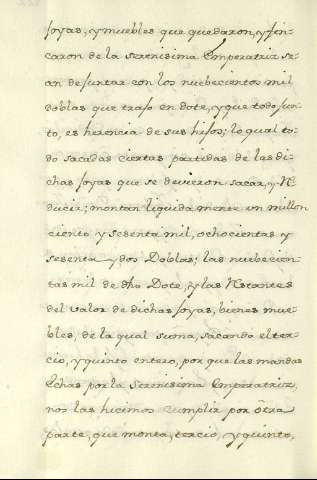 joyas, y muebles que quedaron, y fin-
caron de la serenisima Emperatriz se-
an de juntar con los nuebecientos mil
doblas que trajo en dote, y que todo jun-
to, es herencia de sus hijos; lo qual to-
do sacadas ciertas partidas de las di-
chas joyas que se devieron sacar, y Re-
ducir; montan liquidamente un millon
ciento y sesenta mil, ochocientas y
sesenta y dos Doblas; las nuebecien-
tas mil de dho Dote, y las Restantes
del valor de dichas joyas, bienes mue-
bles, de la qual suma, sacando el ter-
cio, y quinto entero, por que las mandas
echas por la Serenisima Emperatriz,
nos las hicimos cumplir por otra
parte, que monta, tercio, y quinto,